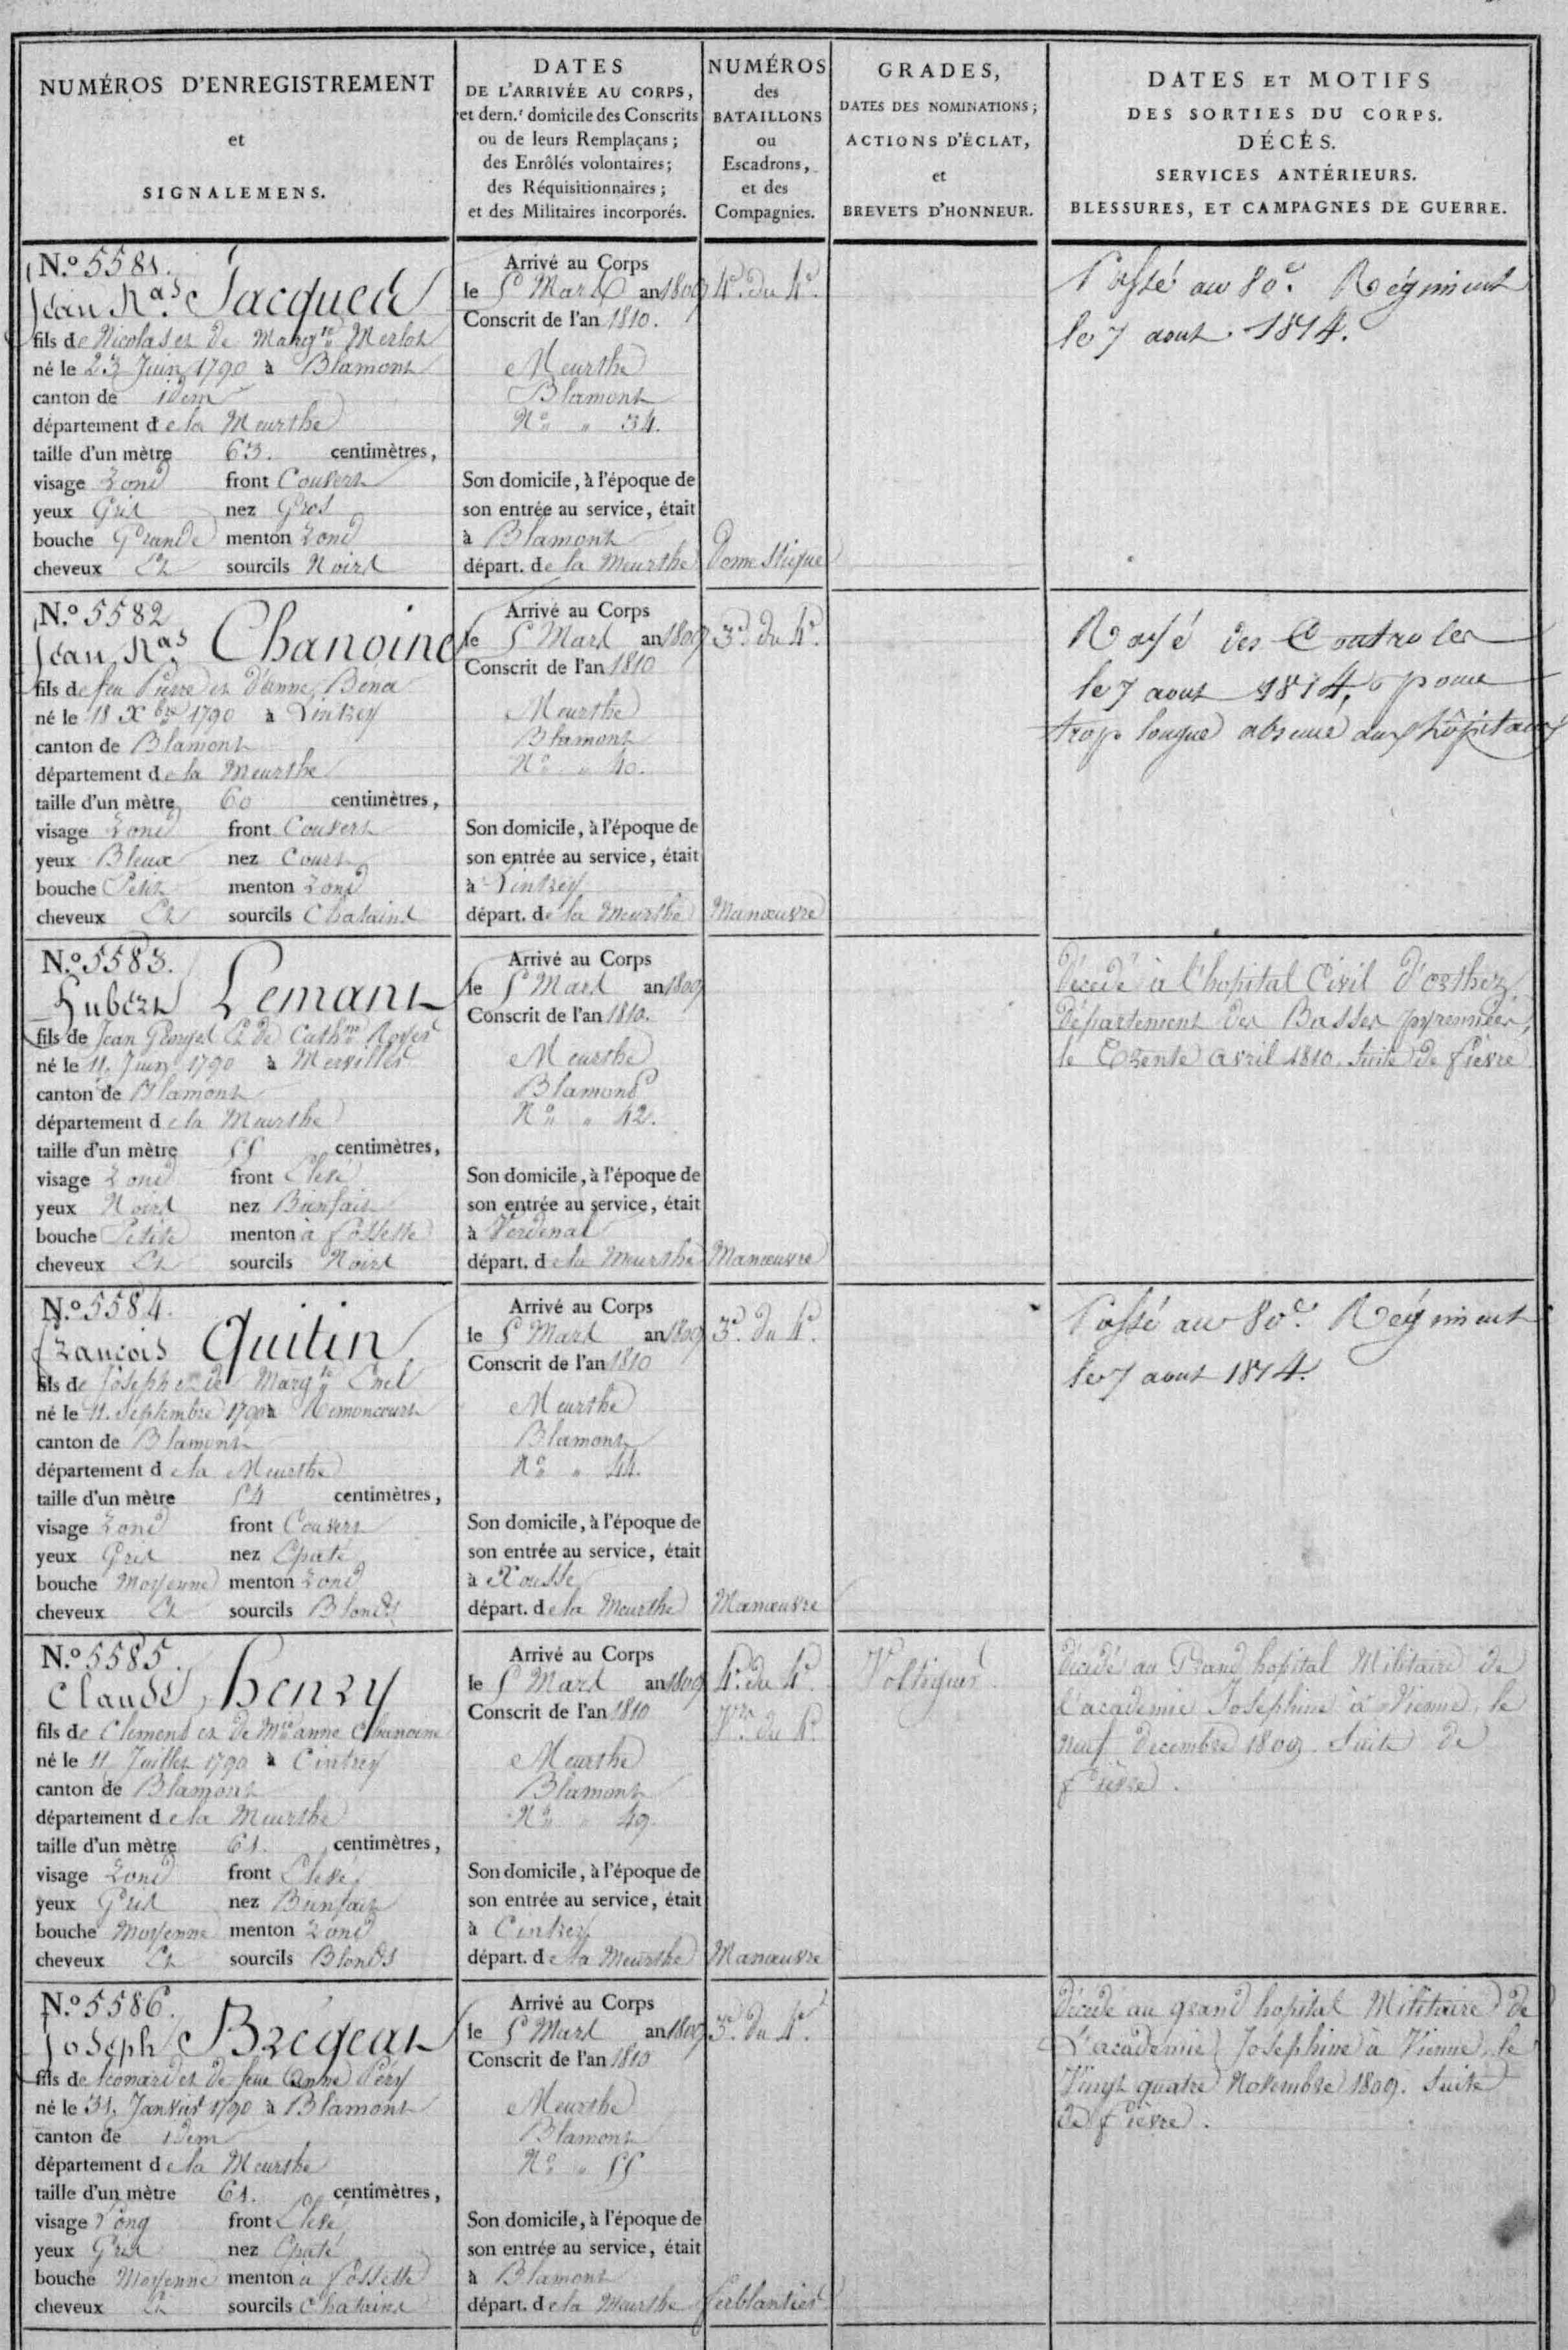 NUMÉROS D'ENREGISTREMENT
et
SIGNALEMENS.
DATES
DE L'ARRIVÉE AU CORPS,
et dern.r domicile des Conscrits
ou de leurs Remplaçans ;
des Enrôlés volontaires ;
des Réquisitionnaires ;
et des Militaires incorporés.
NUMÉROS
des
BATAILLONS
ou
Escadrons,
et des
Compagnies.
GRADES,
DATES DES NOMINATIONS ;
ACTIONS D'ÉCLAT,
et
BREVETS D'HONNEUR.
DATES ET MOTIFS
DES SORTIES DU CORPS.
DÉCÉS.
SERVICES ANTÉRIEURS.
BLESSURES, ET CAMPAGNES DE GUERRE.
N.º 5581.
Jean Nas Jacques
fils de Nicolas et de Margte Merlot
né le 23 Juin 1790 à Blamont
canton de idem
département de la Meurthe
taille d'un mètre 63. centimètres,
visage Rond front Couvert
yeux Gris nez Gros
bouche Grande menton Rond
cheveux Ch sourcils Noirs
Arrivé au Corps
le 5 Mars an 1809
Conscrit de l'an 1810.
Meurthe
Blamont
No " 34.
Son domicile, à l'époque de
son entrée au service, était
à Blamont
départ. de la Meurthe
4e. du 4e.
Domestique
Passé au 80e. Régiment
le 7 aout 1814.
N.º 5582
Jean Nas Chanoine
fils de feu Pierre et d'anne Bena
né le 18 Xbre 1790 à Lintrey
canton de Blamont
département de la Meurthe
taille d'un mètre 60 centimètres,
visage Rond front Couvert
yeux Bleux nez Court
bouche Petite menton Rond
cheveux Ch sourcils Chatains
Arrivé au Corps
le 5 Mars an 1809
Conscrit de l'an 1810
Meurthe
Blamont
No " 40.
Son domicile, à l'époque de
son entrée au service, était
à Lintrey
départ. de la Meurthe
3e. du 4e.
Manœuvre
Rayé des Controles
le 7 aout 1814, pour
trop longue absence aux hôpitaux
N.º 5583.
Hubert Lemant
fils de Jean Georges et de Cathne Royer
né le 11. Juin 1790 à Mervillers
canton de Blamont
département de la Meurthe
taille d'un mètre 55 centimètres,
visage Rond front Elevé
yeux Noirs nez Bienfait
bouche Petite menton à fossette
cheveux Ch sourcils Noirs
Arrivé au Corps
le 5 Mars an 1809
Conscrit de l'an 1810.
Meurthe
Blamont
No " 42.
Son domicile, à l'époque de
son entrée au service, était
à Verdenal
départ. de la Meurthe
Manœuvre
Décédé à l'hopital Civil d'orthez
Département des Basses pyrennées,
le Trente avril 1810. Suite de fièvre
N.º 5584.
françois Quitin
fils de Joseph et de Margte Enel
né le 11. Septembre 1790 à Remoncourt
canton de Blamont
département de la Meurthe
taille d'un mètre 54 centimètres,
visage Rond front Couvert
yeux Gris nez Epaté
bouche Moyenne menton Rond
cheveux Ch sourcils Blonds
Arrivé au Corps
le 5 Mars an 1809
Conscrit de l'an 1810
Meurthe
Blamont
No " 44.
Son domicile, à l'époque de
son entrée au service, était
à Xousse
départ. de la Meurthe
3e. du 4e.
Manœuvre
Passé au 80e. Régiment
le 7 aout 1814.
N.º 5585.
Claude henry
fils de Clement et de Mie anne Chanoine
né le 11 Juillet 1790 à Cintrey
canton de Blamont
département de la Meurthe
taille d'un mètre 61. centimètres,
visage Rond front Elevé
yeux Gris nez Bienfait
bouche Moyenne menton Rond
cheveux Ch sourcils Blonds
Arrivé au Corps
le 5 Mars an 1809
Conscrit de l'an 1810
Meurthe
Blamont
No " 49.
Son domicile, à l'époque de
son entrée au service, était
à Cintrey
départ. de la Meurthe
4e. du 4e.
Vrs. du 4e.
Manœuvre
Voltigeur
Décédé au Grand hopital Militaire de
l'academie Josephine à Vienne, le
neuf Decembre 1809. Suite de
fièvre.
N.º 5586.
Joseph Bregeat
fils de Leonard et de feue Anne Péry
né le 31. Janvier 1790 à Blamont
canton de idem
département de la Meurthe
taille d'un mètre 61. centimètres,
visage Long front Elevé
yeux Gris nez Epaté
bouche Moyenne menton à fossette
cheveux Ch sourcils Chatains
Arrivé au Corps
le 5 Mars an 1809
Conscrit de l'an 1810
Meurthe
Blamont
No " 55
Son domicile, à l'époque de
son entrée au service, était
à Blamont
départ. de la Meurthe
3e. du 4e.
ferblantier
Décédé au grand hopital Militaire de
L'academie Josephine à Vienne, le
Vingt quatre Novembre 1809. Suite
de fièvre.